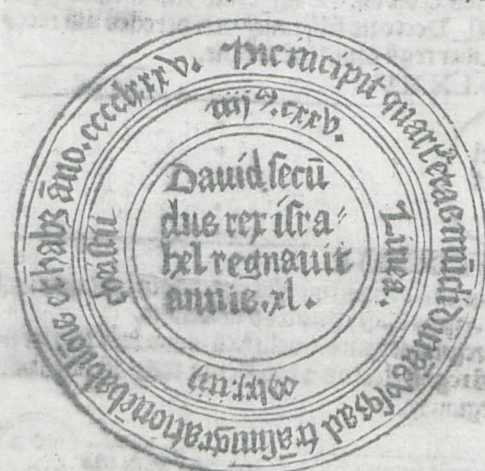 Hic incipit quarta etas mũdi Durãs vsqz ad trãsmigrationẽ babilõis et habz ãno. cccclxxx v.
iiijᵐ. cxxv.
Linea.
Christi
Dauid secũ
dus rex isra⸗
hel regnauit
annis .xl.